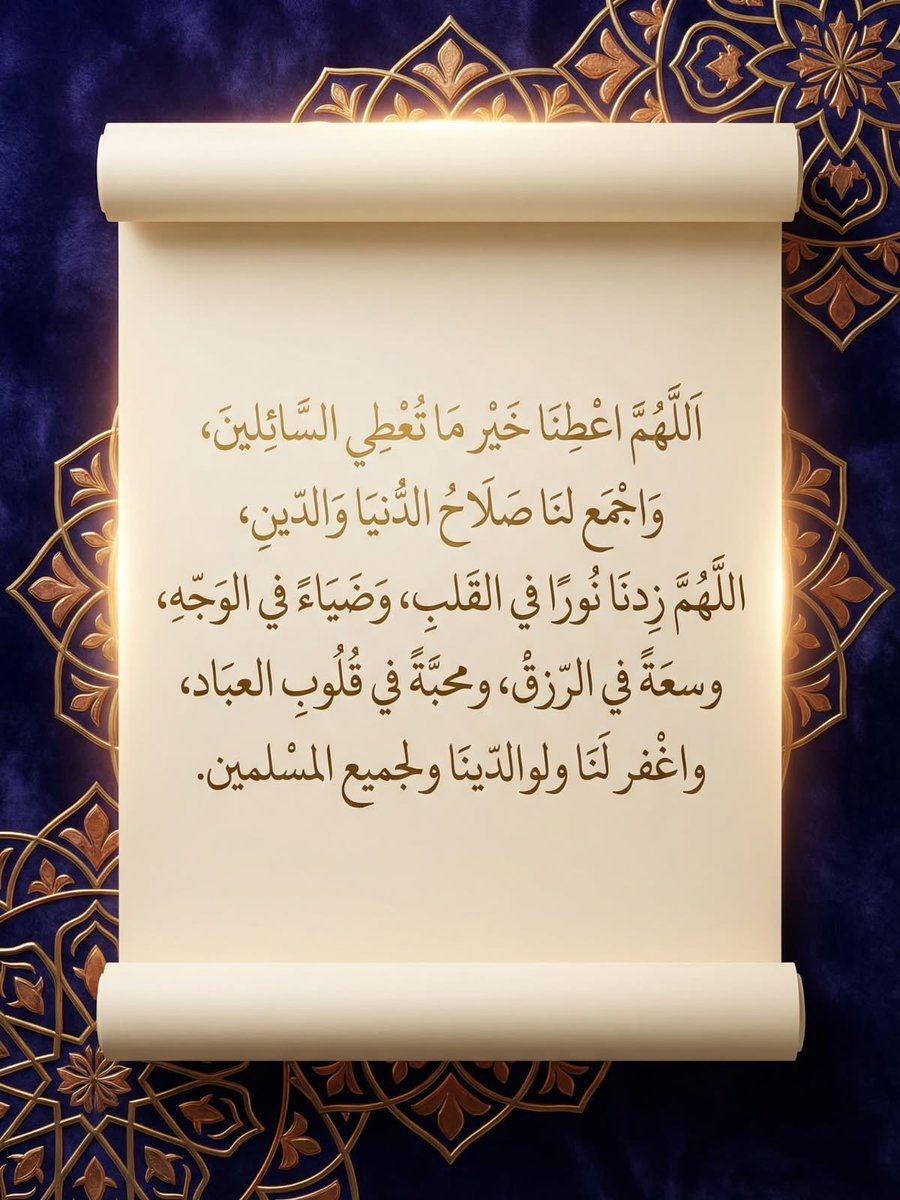 اَللَّهُمَّ اعْطِنَا خَيْر مَا تُعْطِي السَّائِلينَ،
وَاجْمَع لنَا صَلَاحُ الدُّنيَا وَالدّينِ،
اللَّهُمَّ زِدنَا نُورًا في القَلبِ، وَضَيَاءً في الوَجّهِ،
وسعَةً في الرّزقْ، ومحبَّةً في قُلُوبِ العبَاد،
واغْفر لَنَا ولوالدّينَا ولجميع المسْلمين.